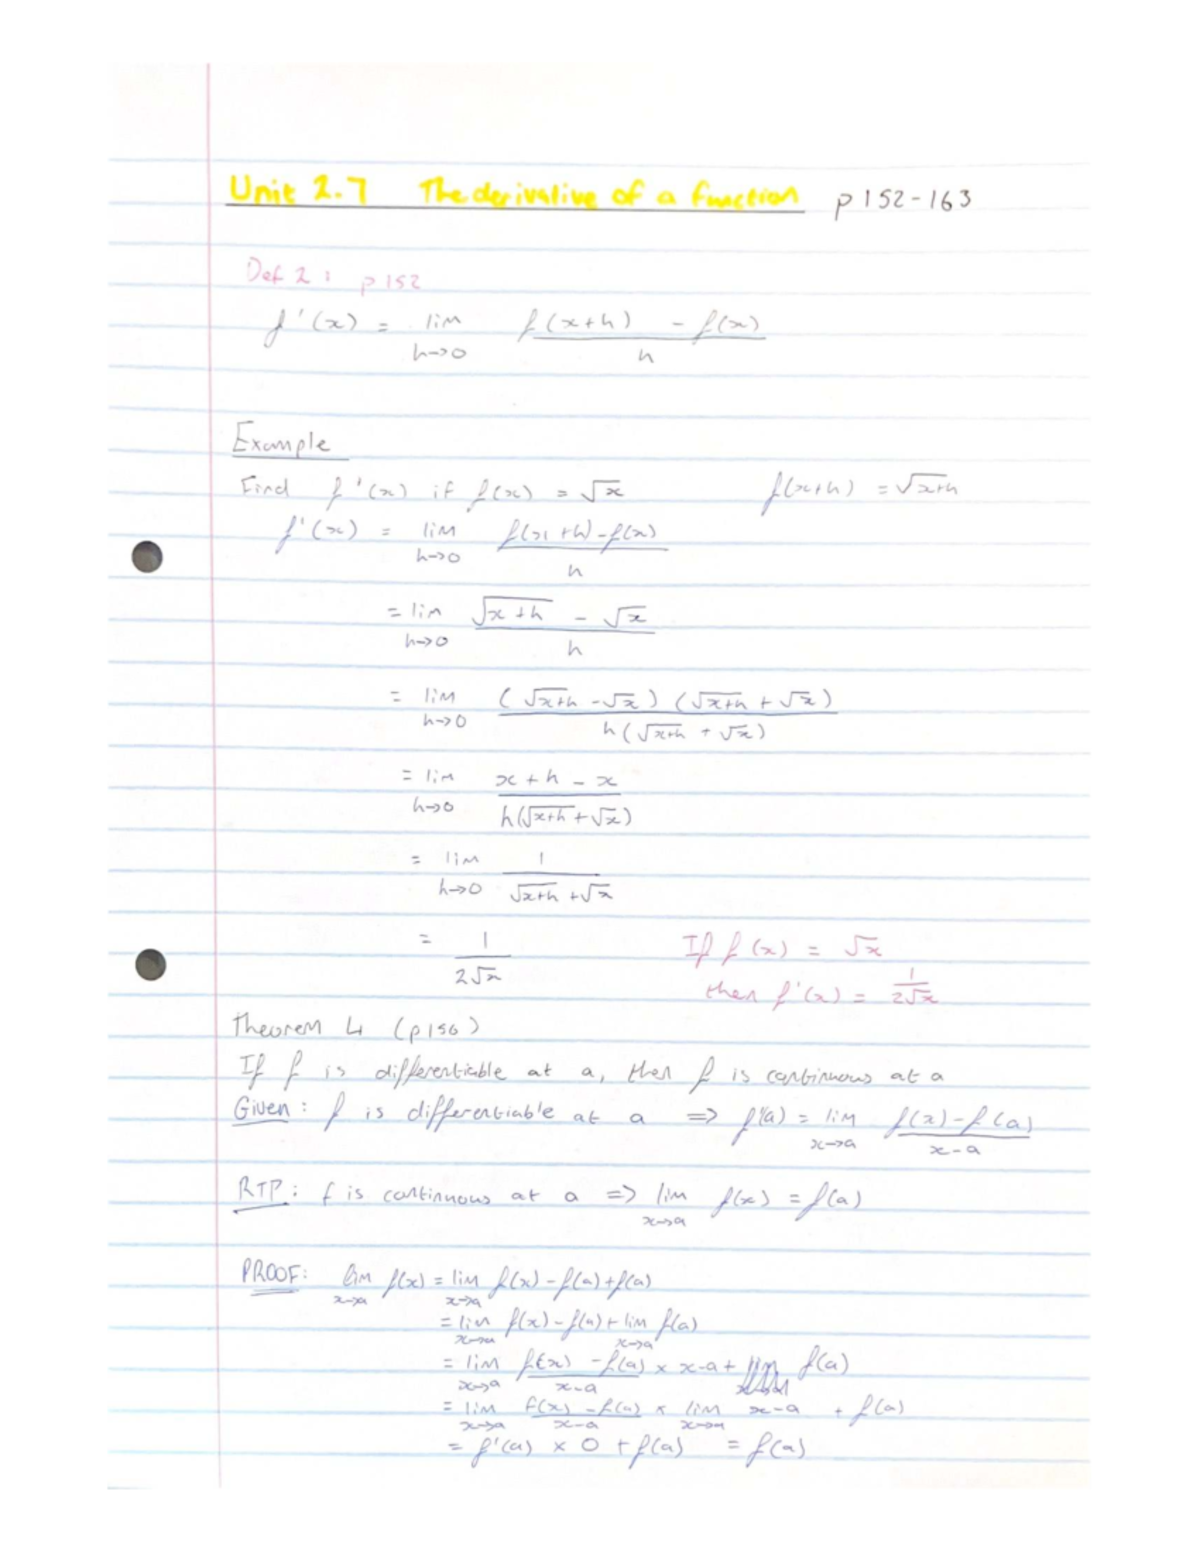 Unit 2.7 The derivative of a function p152-163
Def 2: p152
f'(x) = lim h→0 (f(x+h) - f(x)) / h
Example
Find f'(x) if f(x) = √x f(x+h) = √x+h
f'(x) = lim h→0 (f(x+h) - f(x)) / h
= lim h→0 (√x+h - √x) / h
= lim h→0 (√x+h - √x)(√x+h + √x) / h(√x+h + √x)
= lim h→0 (x+h-x) / h(√x+h + √x)
= lim h→0 1 / (√x+h + √x)
= 1 / 2√x
If f(x) = √x
then f'(x) = 1 / 2√x
Theorem 4 (p156)
If f is differentiable at a, then f is continuous at a
Given: f is differentiable at a => f'(a) = lim x→a (f(x) - f(a)) / (x-a)
RTP: f is continuous at a => lim x→a f(x) = f(a)
PROOF: lim x→a f(x) = lim x→a f(x) - f(a) + f(a)
= lim x→a f(x) - f(a) + lim x→a f(a)
= lim x→a (f(x) - f(a)) / (x-a) × x-a + f(a)
= lim x→a (f(x) - f(a)) / (x-a) × lim x→a x-a + f(a)
= f'(a) × 0 + f(a) = f(a)